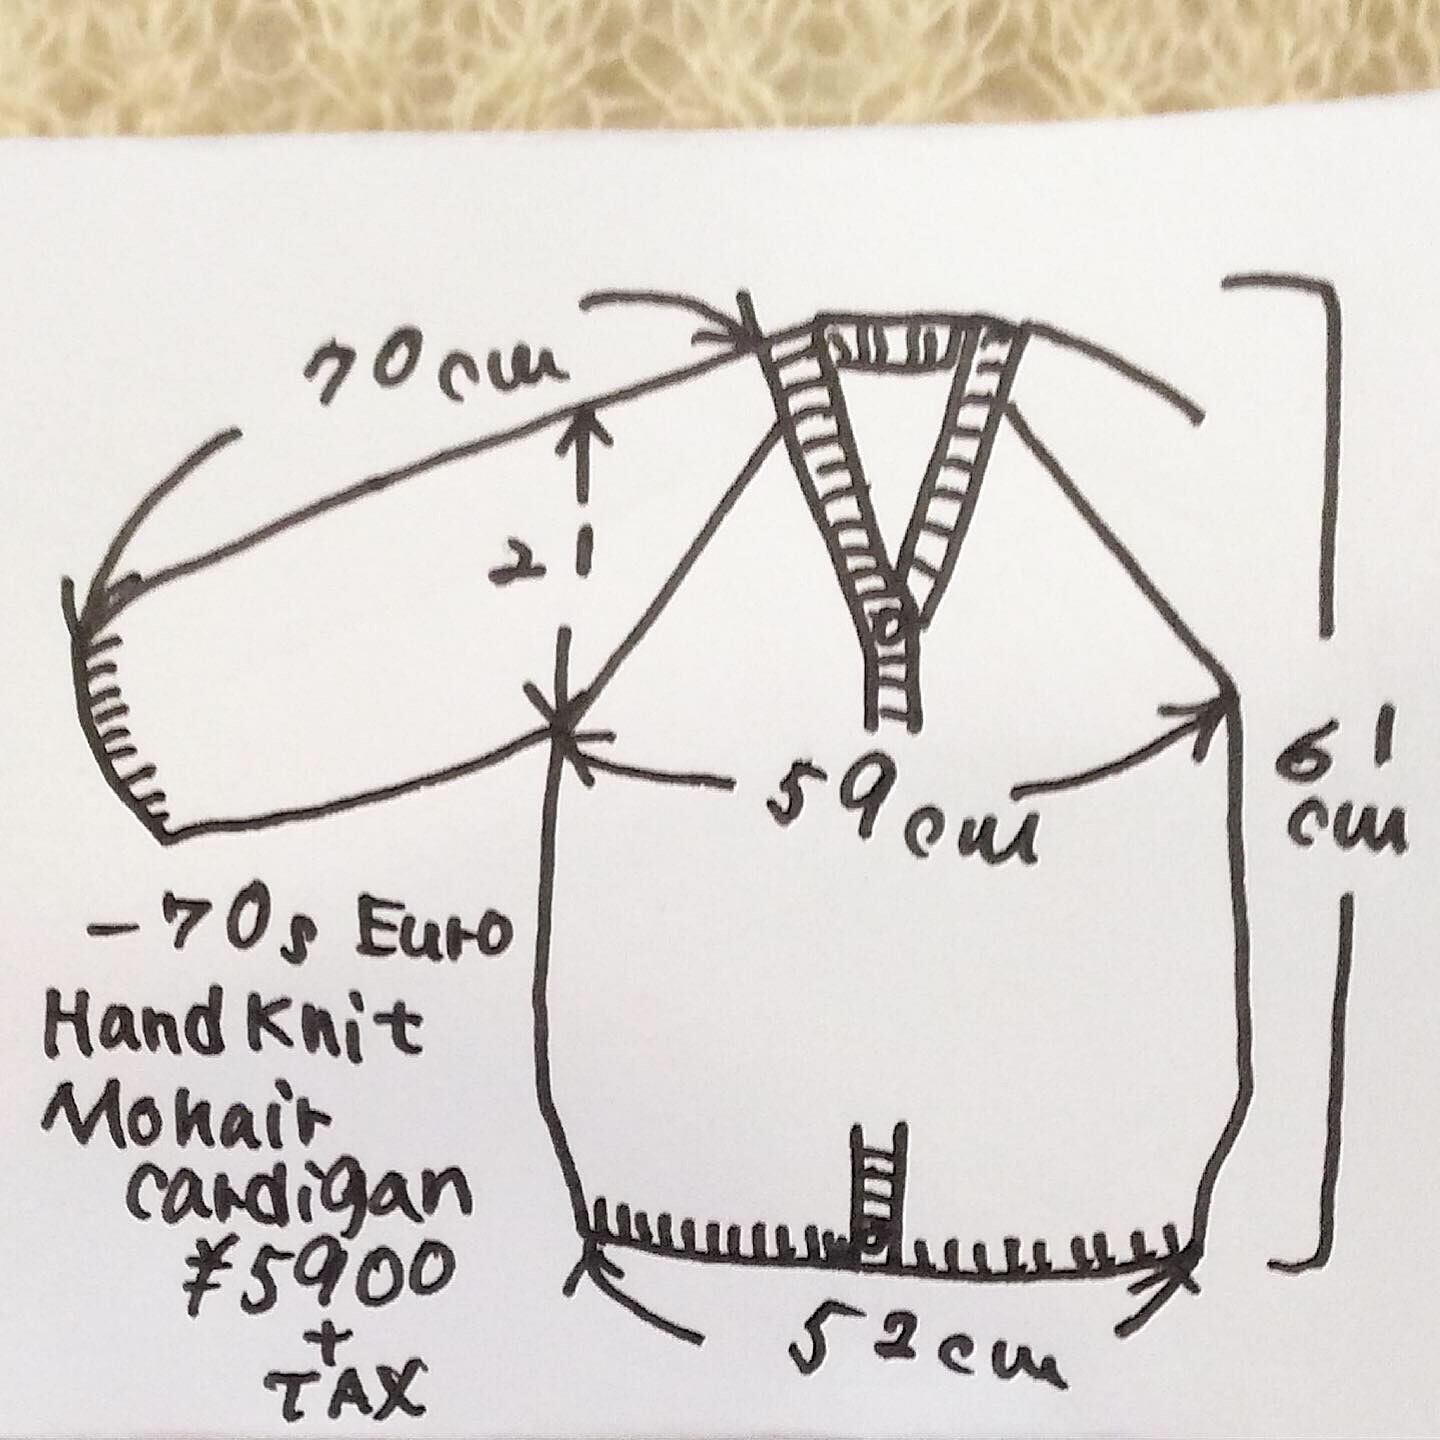 70cm
21
59cm
61
cm
-70s Euro
Hand Knit
Mohair
Cardigan
¥5900
+
TAX
52cm